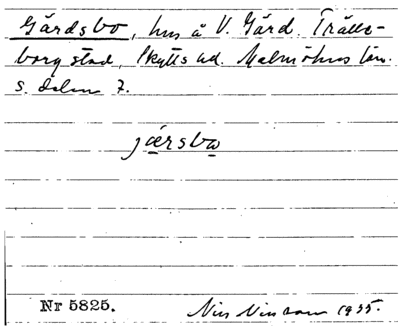 Gärdsbo, hus å V. Gärd. Trälle-
borg stad, Skytts hd. Malmöhus län.
s. delen 7.
jærsbo
Nr 5825.
Nils Nilsson 1935.